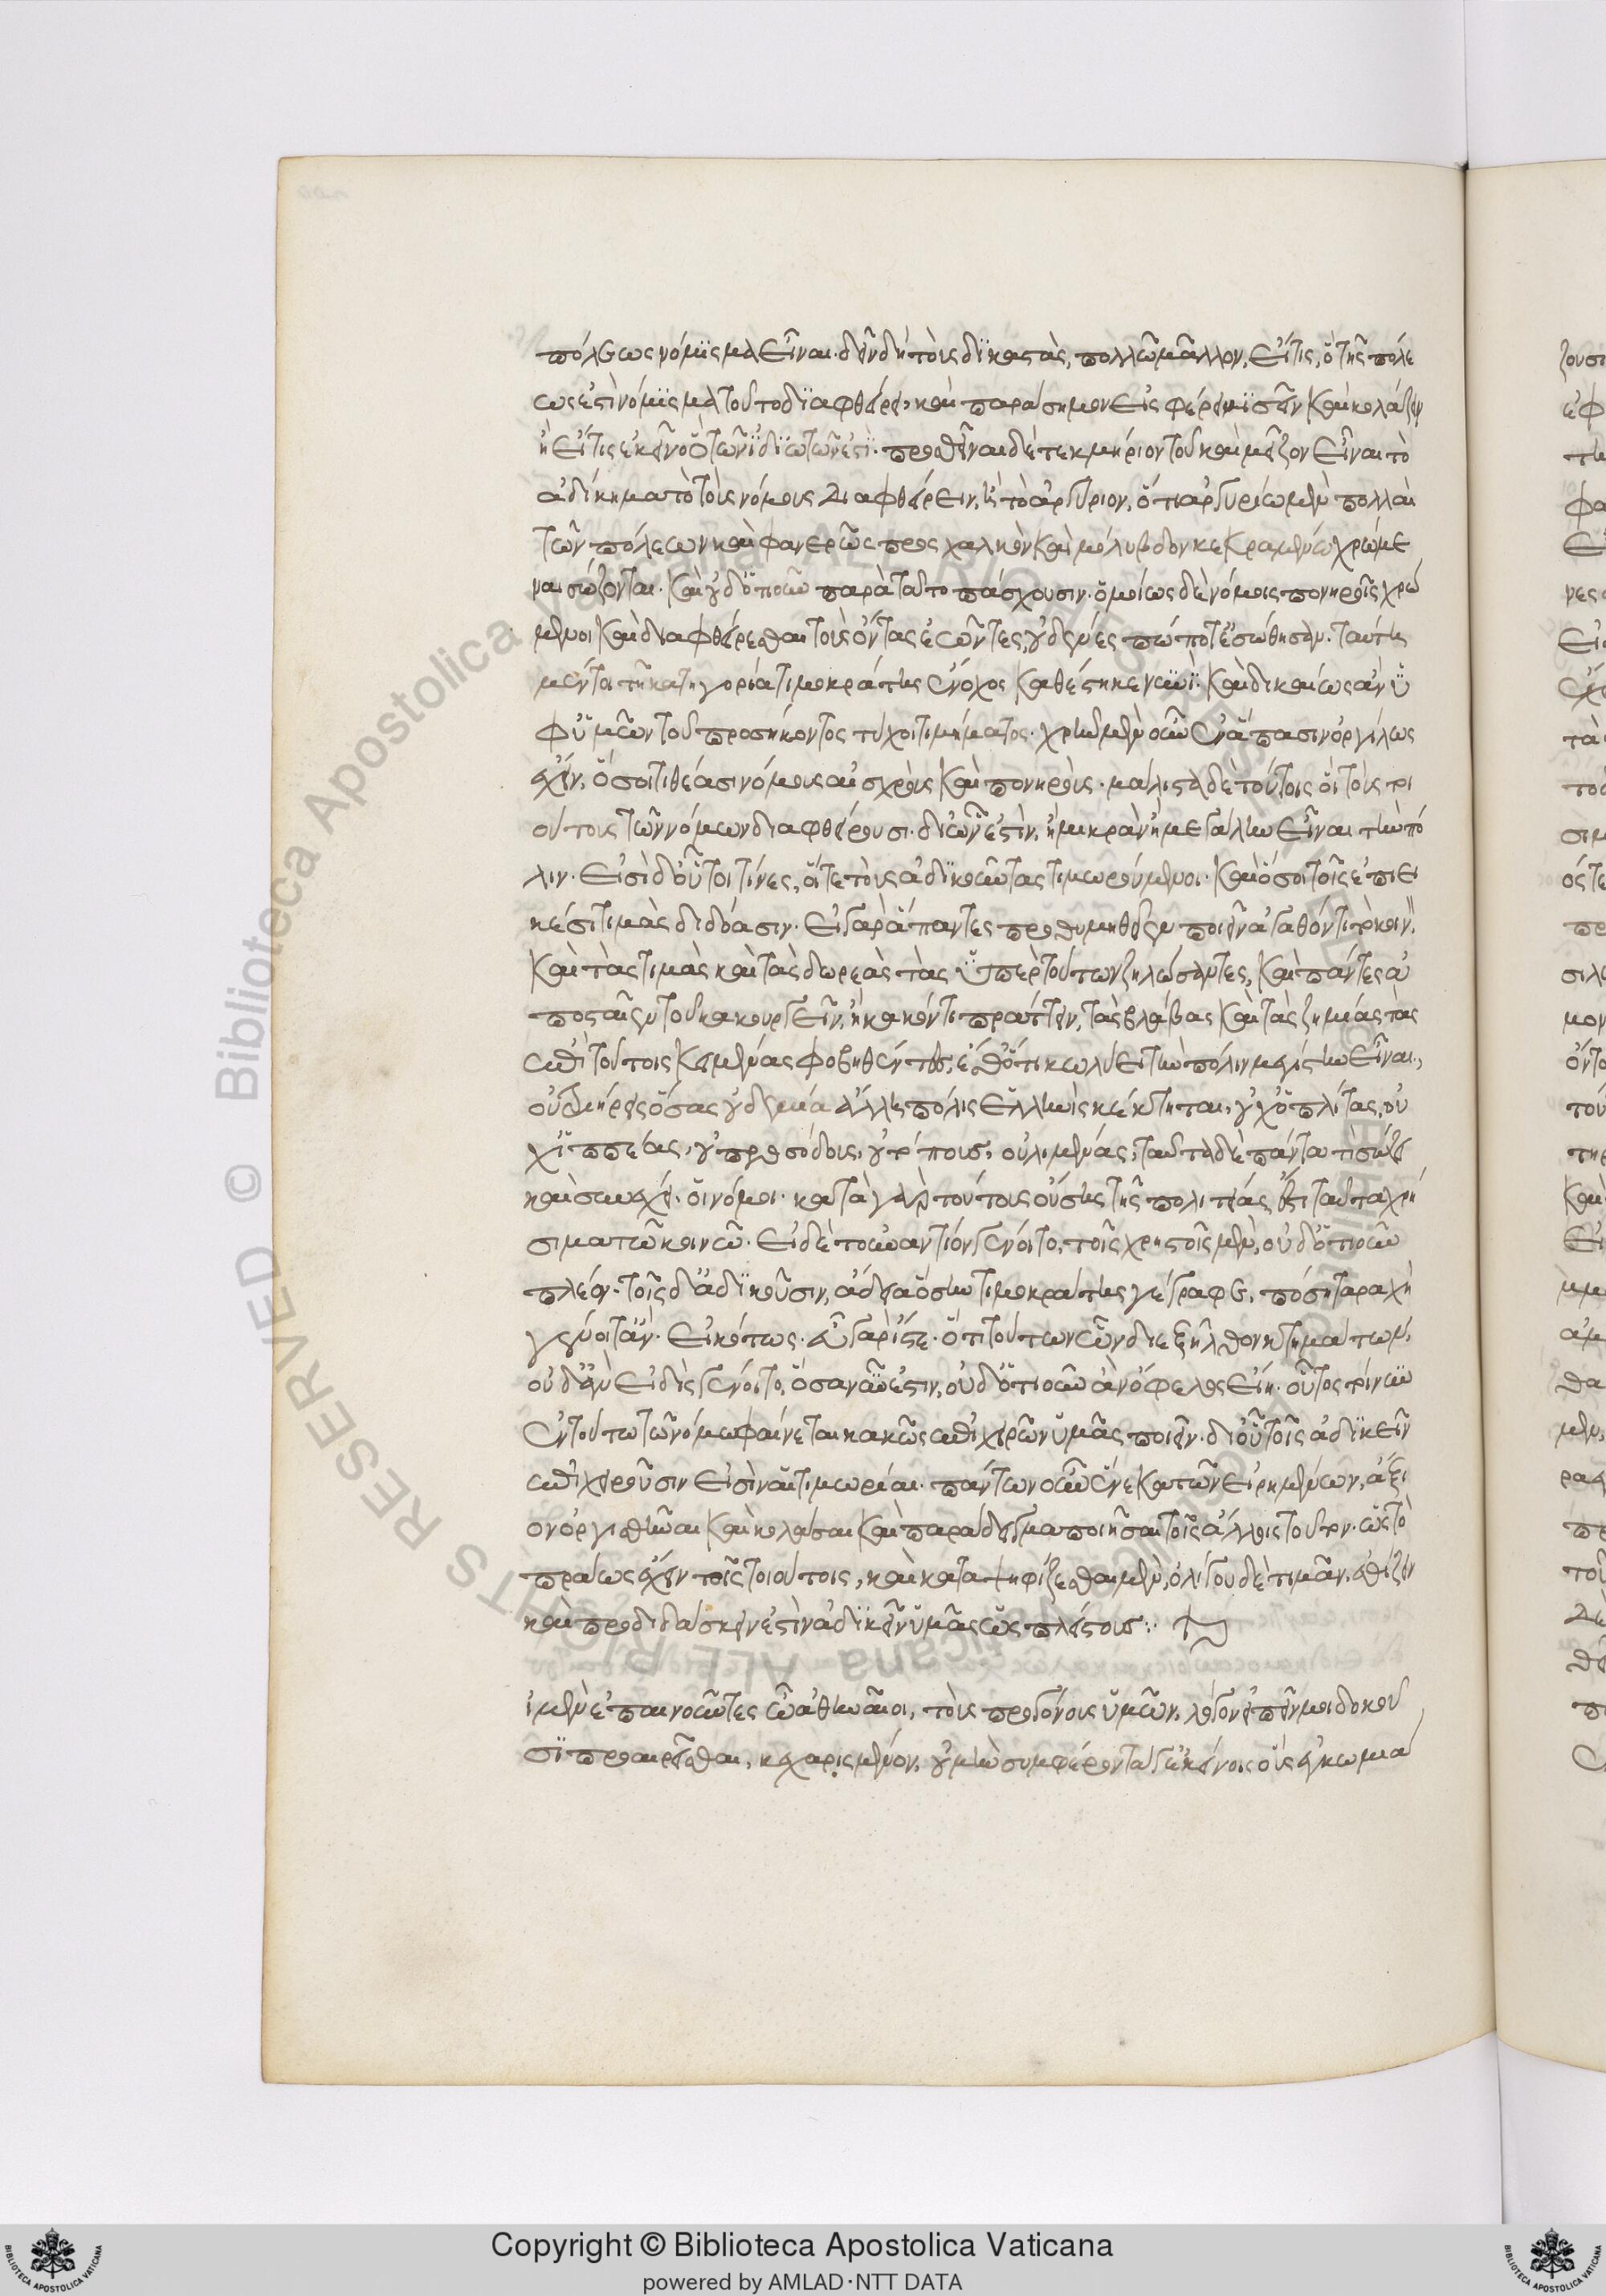 πόλεως νόμισμα εἶναι. δεῖν δὴ τοὺς δικαστὰς, πολλῷ μᾶλλον, εἴ τις, ὃ τῆς πόλε
ως ἐστὶ νόμισμα τοῦτο διαφθείρει καὶ παράσημον εἰσφέρει μισεῖν καὶ κολάζειν
ἢ εἴ τις ἐκεῖνο ὃ τῶν ἰδιωτῶν ἐστι. προσθεῖναι δὲ τεκμήριον τοῦ καὶ μεῖζον εἶναι τὸ
ἀδίκημα τὸ τοὺς νόμους διαφθείρειν, ἢ τὸ ἀργύριον, ὅτι ἀργυρίῳ μὲν πολλαὶ
τῶν πόλεων καὶ φανερῶς πρὸς χαλκὸν καὶ μόλυβδον κεκραμένῳ χρώμε
ναι σώζονται. καὶ οὐδ' ὁτιοῦν παρὰ τοῦτο πάσχουσιν. ὁμοίως δὲ νόμοις πονηροῖς χρώ
μενοι καὶ διαφθείρεσθαι τοὺς ὄντας ἐῶντες, οὐδένες πώποτε ἐσώθησαν. ταύτῃ
μέντοι τῇ κατηγορίᾳ τιμοκράτης ἔνοχος καθέστηκε νυνί. καὶ δικαίως ἂν ὑ
φ' ὑμῶν τοῦ προσήκοντος τύχοι τιμήματος. χρὴ μὲν οὖν ἅπασιν ὀργίλως
ἔχειν, ὅσοι τιθέασι νόμους αἰσχροὺς καὶ πονηρούς. μάλιστα δὲ τούτοις οἳ τοὺς τοι
ούτους τῶν νόμων διαφθείρουσι. δι' ὧν ἐστὶν, ἢ μικρὰν ἢ μεγάλην εἶναι τὴν πό
λιν. εἰσὶ δ' οὗτοι τίνες, οἵ τε τοὺς ἀδικοῦντας τιμωρούμενοι. καὶ ὅσοι τοῖς ἐπιει
κέσι τιμὰς διδόασιν. εἰ γὰρ ἅπαντες προθυμηθεῖεν ποιεῖν ἀγαθόν τι τὸ κοινὸν,
καὶ τὰς τιμὰς καὶ τὰς δωρεὰς τὰς ὑπὲρ τούτων ζηλώσαντες, καὶ πάντες ἀ
ποσταῖεν τοῦ κακουργεῖν, ἢ κακόν τι πράττειν, τὰς βλάβας καὶ τὰς ζημίας τὰς
ἐπὶ τούτοις κειμένας φοβηθέντες, ἔσθ' ὅτι κωλύει τὴν πόλιν μεγίστην εἶναι,
οὐ τριήρεις ὅσας οὐδεμία ἄλλη πόλις ἑλληνὶς κέκτηται, οὐχ ὁπλίτας, οὐ
χ ἱππέας, οὐ προσόδους, οὐ τόπους, οὐ λιμένας, ταῦτα δὲ πάντα τί σώζει
καὶ συνέχει. οἱ νόμοι. κατὰ γὰρ τούτους οὔσης τῆς πολιτείας ἔστι ταῦτα χρή
σιμα τῷ κοινῷ. εἰ δὲ τοὐναντίον γένοιτο, τοῖς χρηστοῖς μὲν, οὐδ' ὁτιοῦν
πλέον. τοῖς δ' ἀδικοῦσιν, ἄδεια ὅσην τιμοκράτης γέγραφε, πόση ταραχὴ
γένοιτ' ἄν. εἰκότως. εὖ γὰρ ἴστε. ὅτι τούτων ὧν διεξῆλθον κτημάτων,
οὐδ' ἂν εἰ δὶς γένοιτο, ὅσα νῦν ἐστιν, οὐδ' ὁτιοῦν ἂν ὄφελος εἴη. οὗτος τοίνυν
ἐν τούτῳ τῷ νόμῳ φαίνεται κακῶς ἐπιχειρῶν ὑμᾶς ποιεῖν. δι' οὗ τοῖς ἀδικεῖν
ἐπιχειροῦσιν εἰσὶν αἱ τιμωρίαι. πάντων οὖν ἕνεκα τῶν εἰρημένων, ἄξι
ον ὀργισθῆναι καὶ κολάσαι καὶ παράδειγμα ποιῆσαι τοῖς ἄλλοις τοῦτον. ὡς τὸ
πράως ἔχειν τοῖς τοιούτοις, καὶ καταψηφίζεσθαι μὲν, ὀλίγου δὲ τιμᾶν, ἐθίζειν
καὶ προδιδάσκειν ἐστὶν ἀδικεῖν ὑμᾶς ὡς πλείστους
ἱ μὲν ἐπαινοῦντες ὦ ἀθηναῖοι, τοὺς προγόνους ὑμῶν, λόγον εἰπεῖν μοι δοκοῦ
σι προαιρεῖσθαι, κεχαρισμένον, οὐ μὴν συμφέροντά γε ἐκείνοις οὓς ἐγκωμιά
Copyright © Biblioteca Apostolica Vaticana
powered by AMLAD·NTT DATA